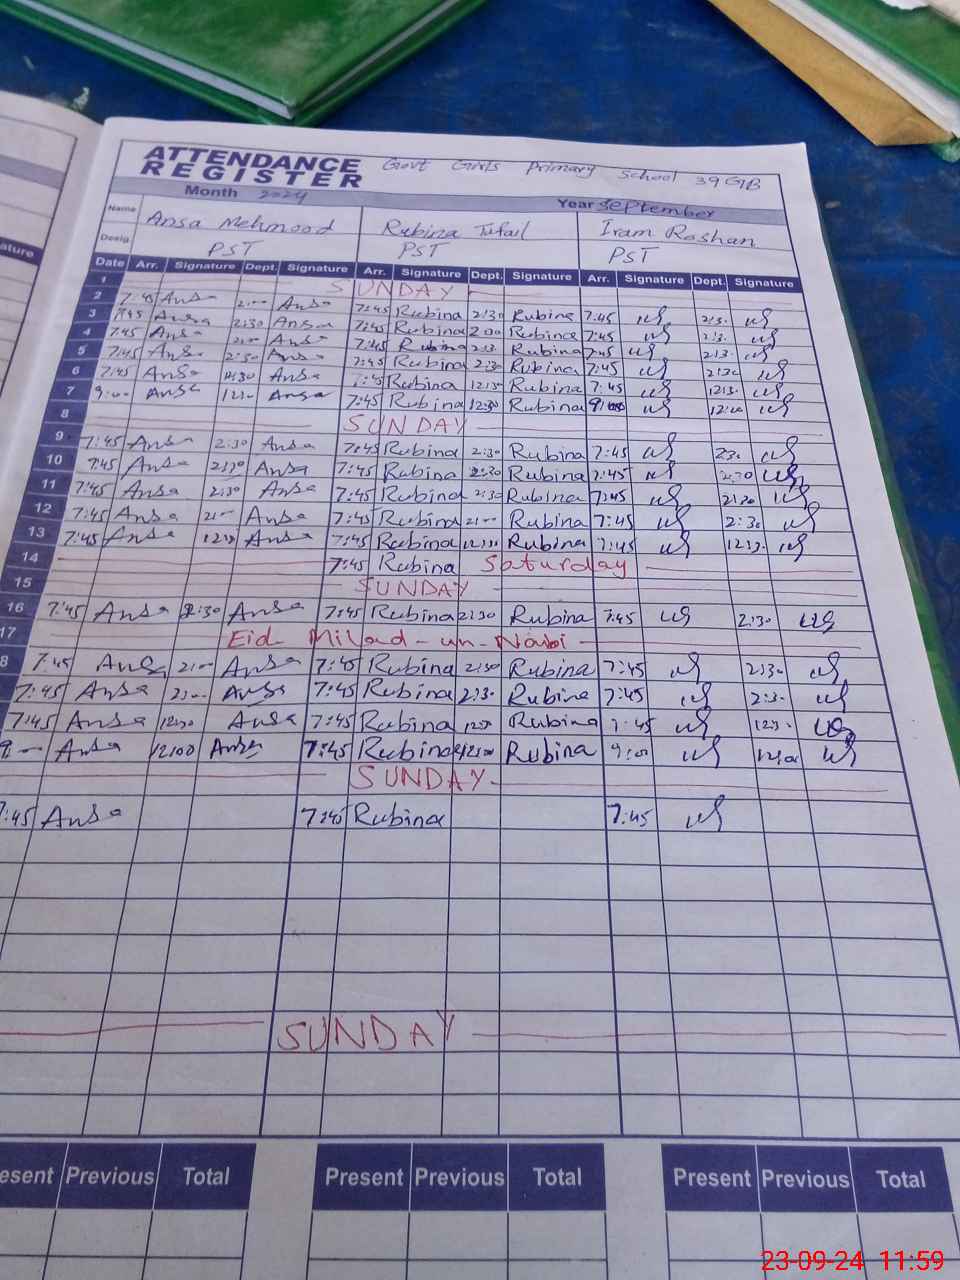 ature
ATTENDANCE REGISTER Govt Girls Primary School 39 GB
Month 2024 Year September
Name Ansa Mehmood Rubina Tufail Iram Roshan
Desig. PST PST PST
Date Arr. Signature Dept. Signature Arr. Signature Dept. Signature Arr. Signature Dept. Signature
1 SUNDAY
2 7:45 Ansa 2:00 Ansa 7:45 Rubina 2:30 Rubina 7:45 2:30
3 7:45 Ansa 2:30 Ansa 7:45 Rubina 2:00 Rubina 7:45 2:3.
4 7:45 Ansa 2:00 Ansa 7:45 Rubina 2:3. Rubina 7:45 2:3.
5 7:45 Ansa 2:30 Ansa 7:45 Rubina 2:30 Rubina 7:45 2:30
6 7:45 Ansa 12:30 Ansa 7:45 Rubina 12:30 Rubina 7:45 12:3.
7 9:00 Ansa 12:0 Ansa 7:45 Rubina 12:30 Rubina 9:00 12:00
8 SUNDAY
9 7:45 Ansa 2:30 Ansa 7:45 Rubina 2:30 Rubina 7:45 2:30
10 7:45 Ansa 2:30 Ansa 7:45 Rubina 2:30 Rubina 7:45 2:30
11 7:45 Ansa 2:30 Ansa 7:45 Rubina 2:30 Rubina 7:45 2:30
12 7:45 Ansa 2:00 Ansa 7:45 Rubina 2:00 Rubina 7:45 2:30
13 7:45 Ansa 12:30 Ansa 7:45 Rubina 12:30 Rubina 7:45 12:3.
14 7:45 Rubina Saturday
15 SUNDAY
16 7:45 Ansa 2:30 Ansa 7:45 Rubina 2:30 Rubina 7:45 2:30
17 Eid-Milad-un-Nabi
8 7:45 Ansa 2:00 Ansa 7:45 Rubina 2:30 Rubina 7:45 2:30
7:45 Ansa 2:00 Ansa 7:45 Rubina 2:30 Rubina 7:45 2:30
7:45 Ansa 12:30 Ansa 7:45 Rubina 12:30 Rubina 7:45 12:30
9:00 Ansa 12:00 Ansa 7:45 Rubina 12:00 Rubina 9:00 12:00
SUNDAY
7:45 Ansa 7:45 Rubina 7:45
SUNDAY
esent Previous Total Present Previous Total Present Previous Total
23-09-24 11:59